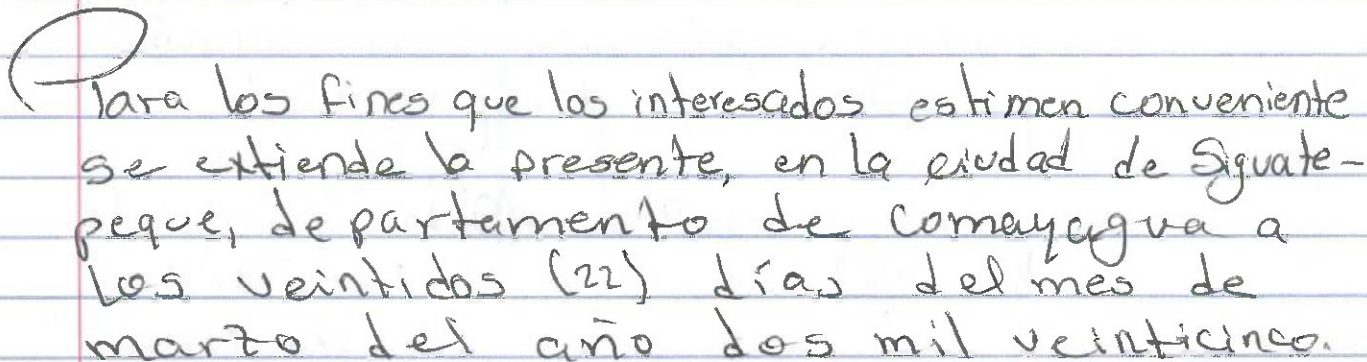 Para los fines que los interesados estimen conveniente
se extiende la presente, en la ciudad de Siguate-
peque, departamento de Comayagua a
los veintidos (22) días del mes de
marzo del año dos mil veinticinco.